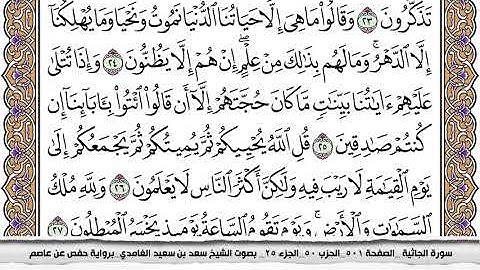 تَذَكَّرُونَ ٢٣ وَقَالُوا۟ مَا هِىَ إِلَّا حَيَاتُنَا ٱلدُّنْيَا نَمُوتُ وَنَحْيَا وَمَا يُهْلِكُنَآ
إِلَّا ٱلدَّهْرُ ۚ وَمَا لَهُم بِذَٰلِكَ مِنْ عِلْمٍ ۖ إِنْ هُمْ إِلَّا يَظُنُّونَ ٢٤ وَإِذَا تُتْلَىٰ
عَلَيْهِمْ ءَايَٰتُنَا بَيِّنَٰتٍ مَّا كَانَ حُجَّتَهُمْ إِلَّآ أَن قَالُوا۟ ٱئْتُوا۟ بِـَٔابَآئِنَآ إِن
كُنتُمْ صَٰدِقِينَ ٢٥ قُلِ ٱللَّهُ يُحْيِيكُمْ ثُمَّ يُمِيتُكُمْ ثُمَّ يَجْمَعُكُمْ إِلَىٰ
يَوْمِ ٱلْقِيَٰمَةِ لَا رَيْبَ فِيهِ وَلَٰكِنَّ أَكْثَرَ ٱلنَّاسِ لَا يَعْلَمُونَ ٢٦ وَلِلَّهِ مُلْكُ
ٱلسَّمَٰوَٰتِ وَٱلْأَرْضِ ۚ وَيَوْمَ تَقُومُ ٱلسَّاعَةُ يَوْمَئِذٍ يَخْسَرُ ٱلْمُبْطِلُونَ ٢٧
سورة الجاثية _ الصفحة ٥٠١ _ الحزب ٥٠ _ الجزء ٢٥ _ بصوت الشيخ سعد بن سعيد الغامدي _ برواية حفص عن عاصم